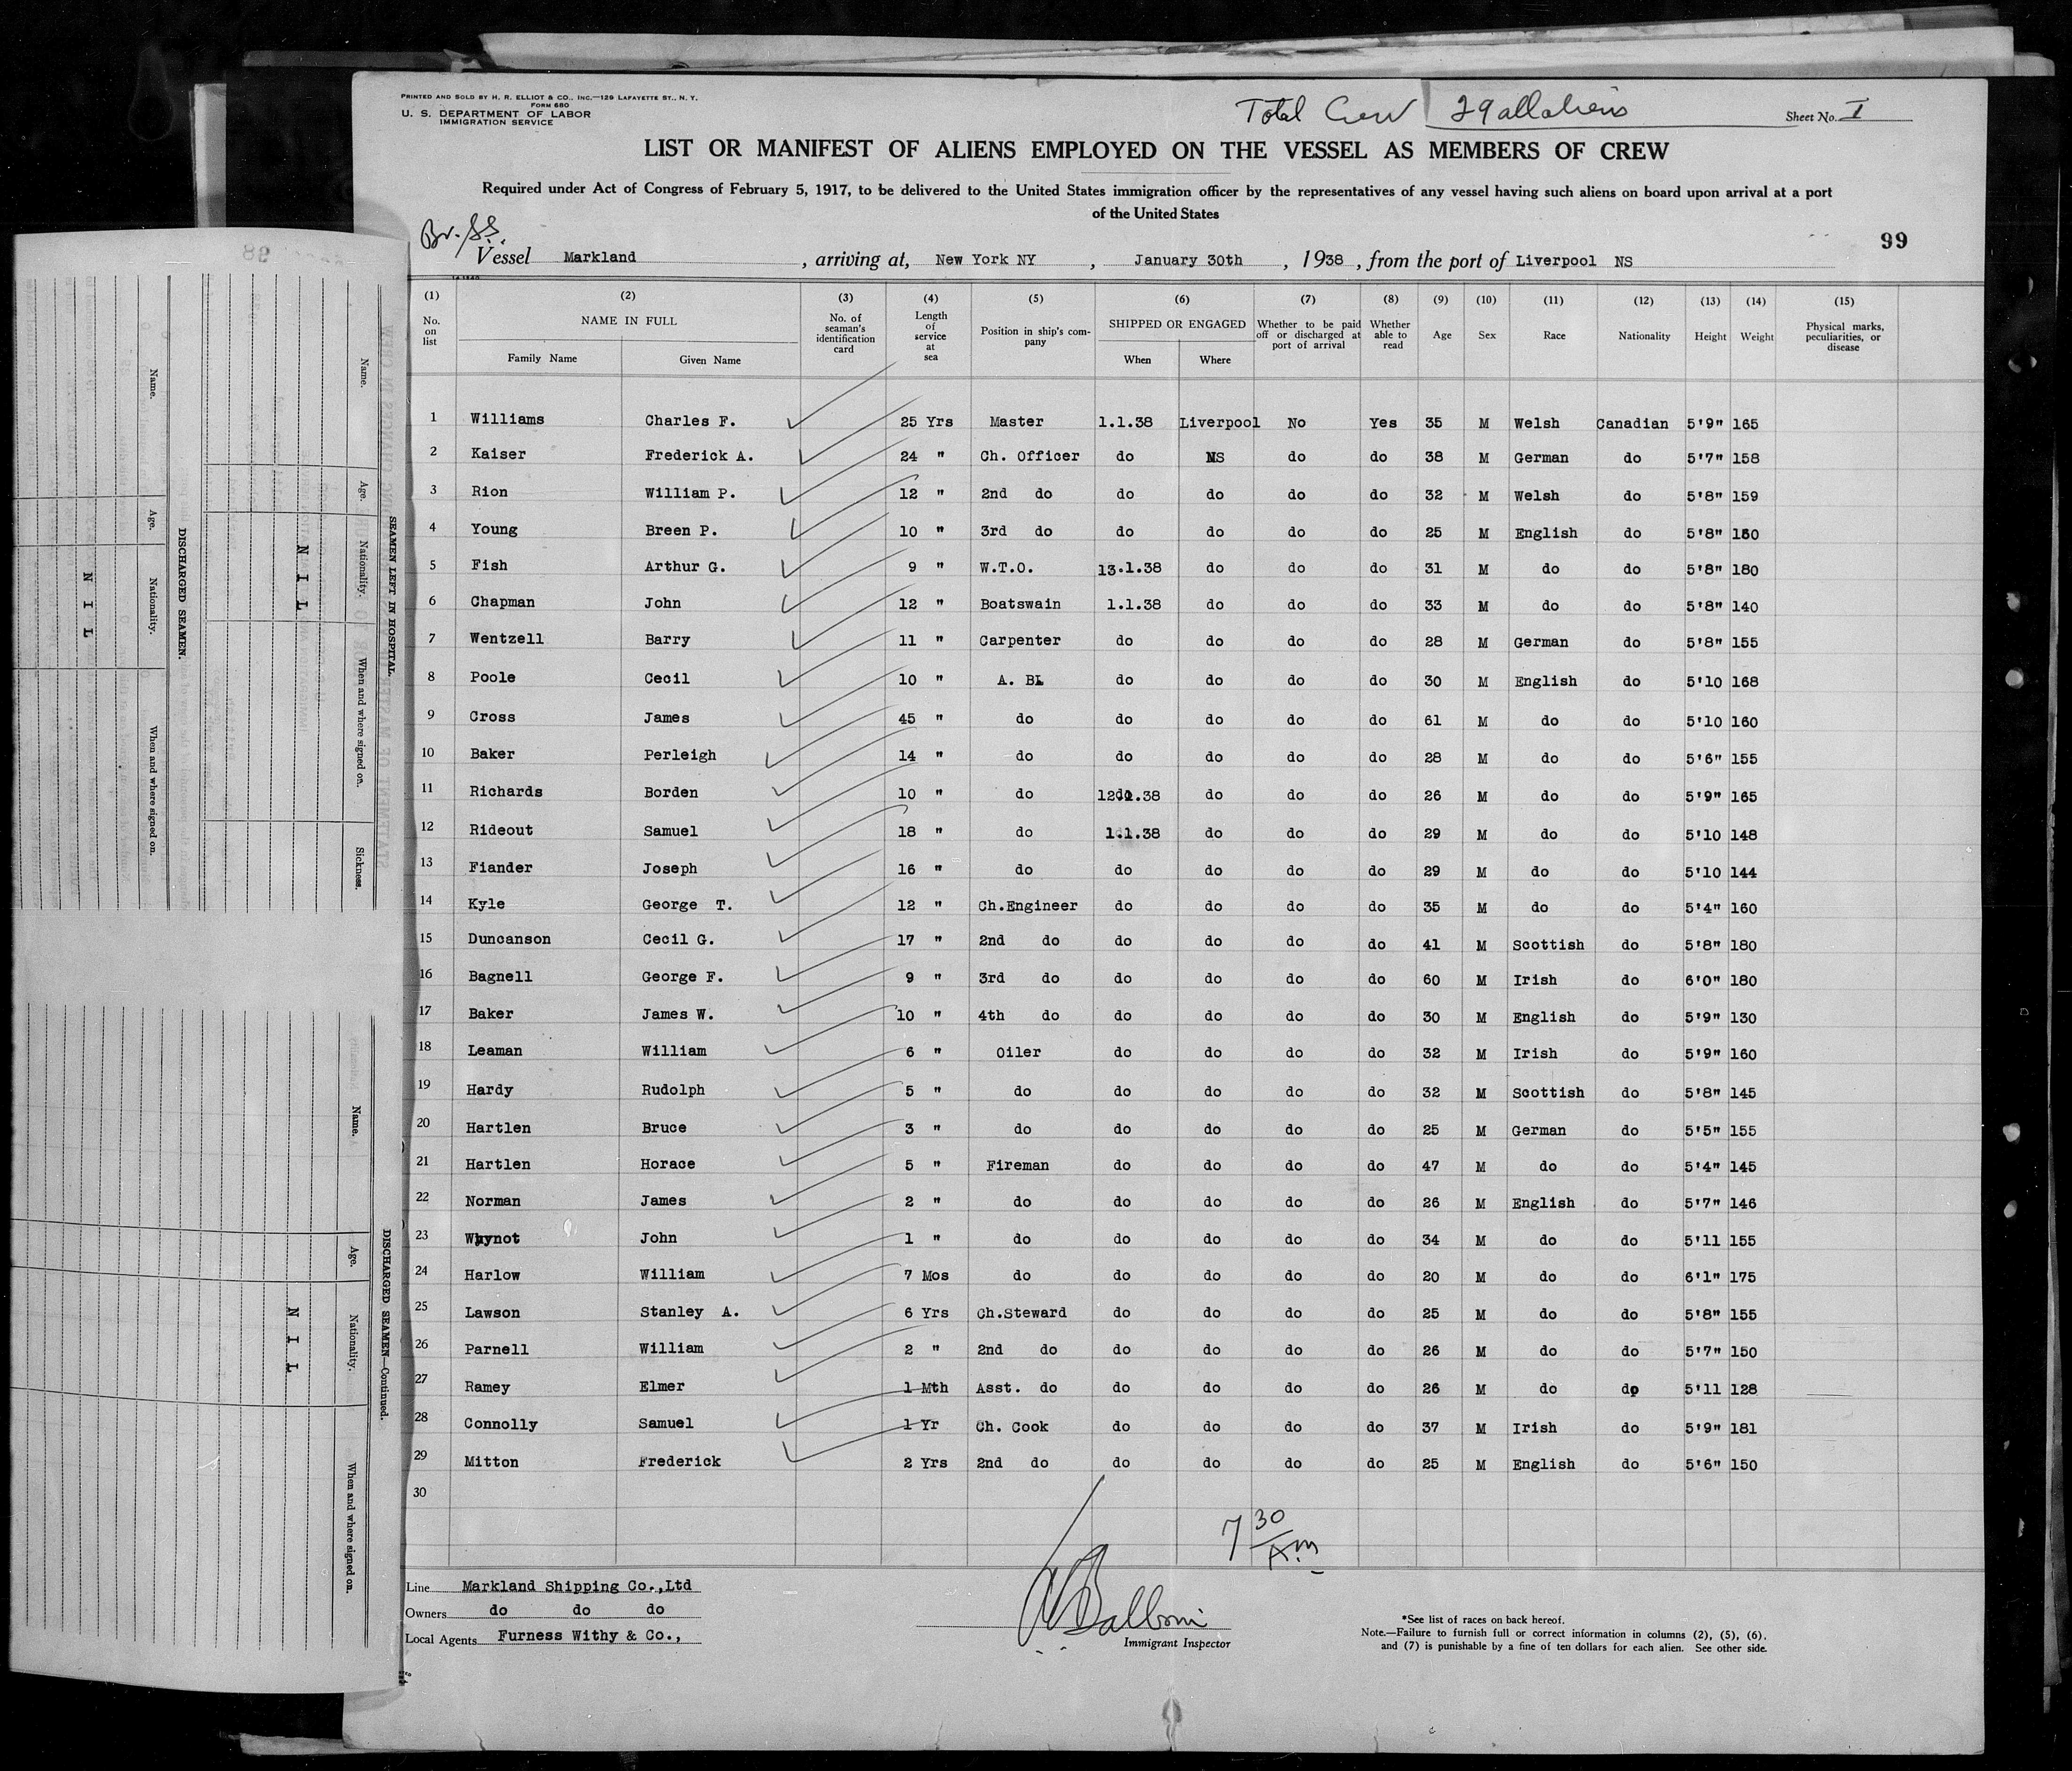 PRINTED AND SOLD BY H. R. ELLIOT & CO., INC.—129 LAFAYETTE ST., N. Y.
FORM 680
U. S. DEPARTMENT OF LABOR
IMMIGRATION SERVICE
Total Crew 29 all aliens
Sheet No. I
LIST OR MANIFEST OF ALIENS EMPLOYED ON THE VESSEL AS MEMBERS OF CREW
Required under Act of Congress of February 5, 1917, to be delivered to the United States immigration officer by the representatives of any vessel having such aliens on board upon arrival at a port
of the United States
99
Br. SS.
Vessel Markland, arriving at, New York NY, January 30th, 1938, from the port of Liverpool NS
(1) (2) (3) (4) (5) (6) (7) (8) (9) (10) (11) (12) (13) (14) (15)
No. on list NAME IN FULL Family Name Given Name No. of seaman's identification card Length of service at sea Position in ship's company SHIPPED OR ENGAGED When Where Whether to be paid off or discharged at port of arrival Whether able to read Age Sex Race Nationality Height Weight Physical marks, peculiarities, or disease
1 Williams Charles F. 25 Yrs Master 1.1.38 Liverpool No Yes 35 M Welsh Canadian 5'9" 165
2 Kaiser Frederick A. 24 " Ch. Officer do NS do do 38 M German do 5'7" 158
3 Rion William P. 12 " 2nd do do do do do 32 M Welsh do 5'8" 159
4 Young Breen P. 10 " 3rd do do do do do 25 M English do 5'8" 150
5 Fish Arthur G. 9 " W.T.O. 13.1.38 do do do 31 M do do 5'8" 180
6 Chapman John 12 " Boatswain 1.1.38 do do do 33 M do do 5'8" 140
7 Wentzell Barry 11 " Carpenter do do do do 28 M German do 5'8" 155
8 Poole Cecil 10 " A. B. do do do do 30 M English do 5'10 168
9 Cross James 45 " do do do do do 61 M do do 5'10 160
10 Baker Perleigh 14 " do do do do do 28 M do do 5'6" 155
11 Richards Borden 10 " do 12.1.38 do do do 26 M do do 5'9" 165
12 Rideout Samuel 18 " do 1.1.38 do do do 29 M do do 5'10 148
13 Fiander Joseph 16 " do do do do do 29 M do do 5'10 144
14 Kyle George T. 12 " Ch.Engineer do do do do 35 M do do 5'4" 160
15 Duncanson Cecil G. 17 " 2nd do do do do do 41 M Scottish do 5'8" 180
16 Bagnell George F. 9 " 3rd do do do do do 60 M Irish do 6'0" 180
17 Baker James W. 10 " 4th do do do do do 30 M English do 5'9" 130
18 Leaman William 6 " Oiler do do do do 32 M Irish do 5'9" 160
19 Hardy Rudolph 5 " do do do do do 32 M Scottish do 5'8" 145
20 Hartlen Bruce 3 " do do do do do 25 M German do 5'5" 155
21 Hartlen Horace 5 " Fireman do do do do 47 M do do 5'4" 145
22 Norman James 2 " do do do do do 26 M English do 5'7" 146
23 Whynot John 1 " do do do do do 34 M do do 5'11 155
24 Harlow William 7 Mos do do do do do 20 M do do 6'1" 175
25 Lawson Stanley A. 6 Yrs Ch.Steward do do do do 25 M do do 5'8" 155
26 Parnell William 2 " 2nd do do do do do 26 M do do 5'7" 150
27 Ramey Elmer 1 Mth Asst. do do do do do 26 M do do 5'11 128
28 Connolly Samuel 1 Yr Ch. Cook do do do do 37 M Irish do 5'9" 181
29 Mitton Frederick 2 Yrs 2nd do do do do do 25 M English do 5'6" 150
30
7 30 A.m
Line Markland Shipping Co.,Ltd
Owners do do do
Local Agents Furness Withy & Co.,
Balboni
Immigrant Inspector
*See list of races on back hereof.
Note.—Failure to furnish full or correct information in columns (2), (5), (6).
and (7) is punishable by a fine of ten dollars for each alien. See other side.
SEAMEN LEFT IN HOSPITAL.
Name. Age. Nationality. When and where signed on. Sickness.
N I L
DISCHARGED SEAMEN.
Name. Age. Nationality. When and where signed on.
N I L
DISCHARGED SEAMEN—Continued.
Name. Age. Nationality. When and where signed on.
N I L